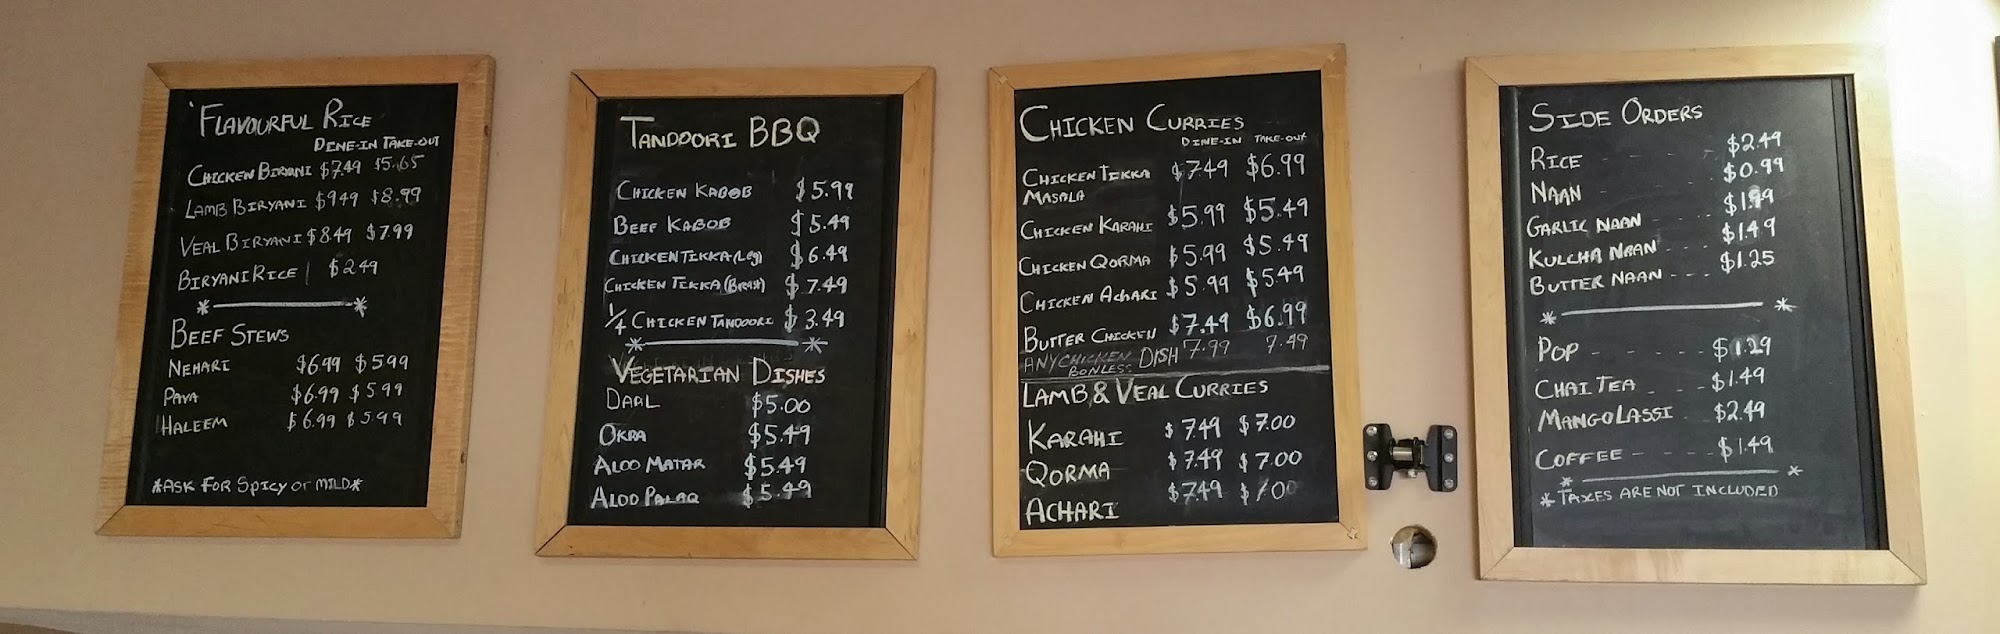 FLAVOURFUL RICE
DINE-IN TAKE-OUT
CHICKEN BIRYANI $7.49 $5.65
LAMB BIRYANI $9.49 $8.99
VEAL BIRYANI $8.49 $7.99
BIRYANI RICE | $2.49
BEEF STEWS
NEHARI $6.99 $5.99
PAYA $6.99 $5.99
HALEEM $6.99 $5.99
*ASK FOR SPICY or MILD*
TANDOORI BBQ
CHICKEN KABOB $5.99
BEEF KABOB $5.49
CHICKEN TIKKA (Leg) $6.49
CHICKEN TIKKA (Brest) $7.49
1/4 CHICKEN TANDOORI $3.49
VEGETARIAN DISHES
DAAL $5.00
OKRA $5.49
ALOO MATAR $5.49
ALOO PALAQ $5.49
CHICKEN CURRIES
DINE-IN TAKE-OUT
CHICKEN TIKKA $7.49 $6.99
MASALA
CHICKEN KARAHI $5.99 $5.49
CHICKEN QORMA $5.99 $5.49
CHICKEN ACHARI $5.99 $5.49
BUTTER CHICKEN $7.49 $6.99
ANY CHICKEN DISH 7.99 7.49
BONLESS
LAMB & VEAL CURRIES
KARAHI $7.49 $7.00
QORMA $7.49 $7.00
ACHARI $7.49 $7.00
SIDE ORDERS
RICE $2.49
NAAN $0.99
GARLIC NAAN $1.99
KULCHA NAAN $1.49
BUTTER NAAN $1.25
POP $1.29
CHAI TEA $1.49
MANGO LASSI $2.49
COFFEE $1.49
*TAXES ARE NOT INCLUDED